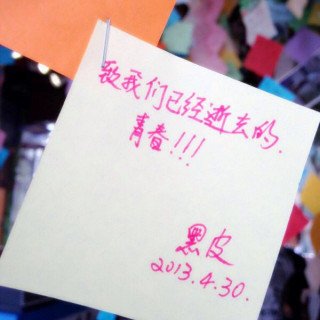 致我们已经逝去的.
青春!!!
黑皮
2013.4.30.